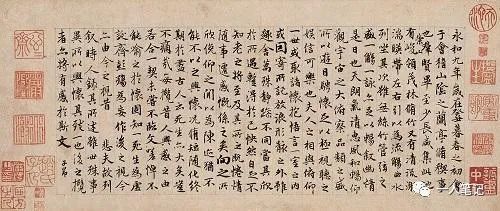 永和九年歲在癸丑暮春之初會
于會稽山陰之蘭亭脩稧事
也羣賢畢至少長咸集此地
有崇山峻領茂林脩竹又有清流激
湍暎帶左右引以為流觴曲水
列坐其次雖無絲竹管弦之
盛一觴一詠亦足以暢敘幽情
是日也天朗氣清惠風和暢仰
觀宇宙之大俯察品類之盛
所以遊目騁懷足以極視聽之
娛信可樂也夫人之相與俯仰
一世或取諸懷抱悟言一室之內
或因寄所託放浪形骸之外雖
趣舍萬殊靜躁不同當其欣
於所遇暫得於己怏然自足不
知老之將至及其所之既惓情
隨事遷感慨係之矣向之所
欣俛仰之間以為陳迹猶不
能不以之興懷況脩短隨化終
期於盡古人云死生亦大矣豈
不痛哉每攬昔人興感之由
若合一契未嘗不臨文嗟悼不
能喻之於懷固知一死生為虛
誕齊彭殤為妄作後之視今
亦由今之視昔悲夫故列
敘時人錄其所述雖世殊事
異所以興懷其致一也後之攬
者亦將有感於斯文 子昂
一人笔记